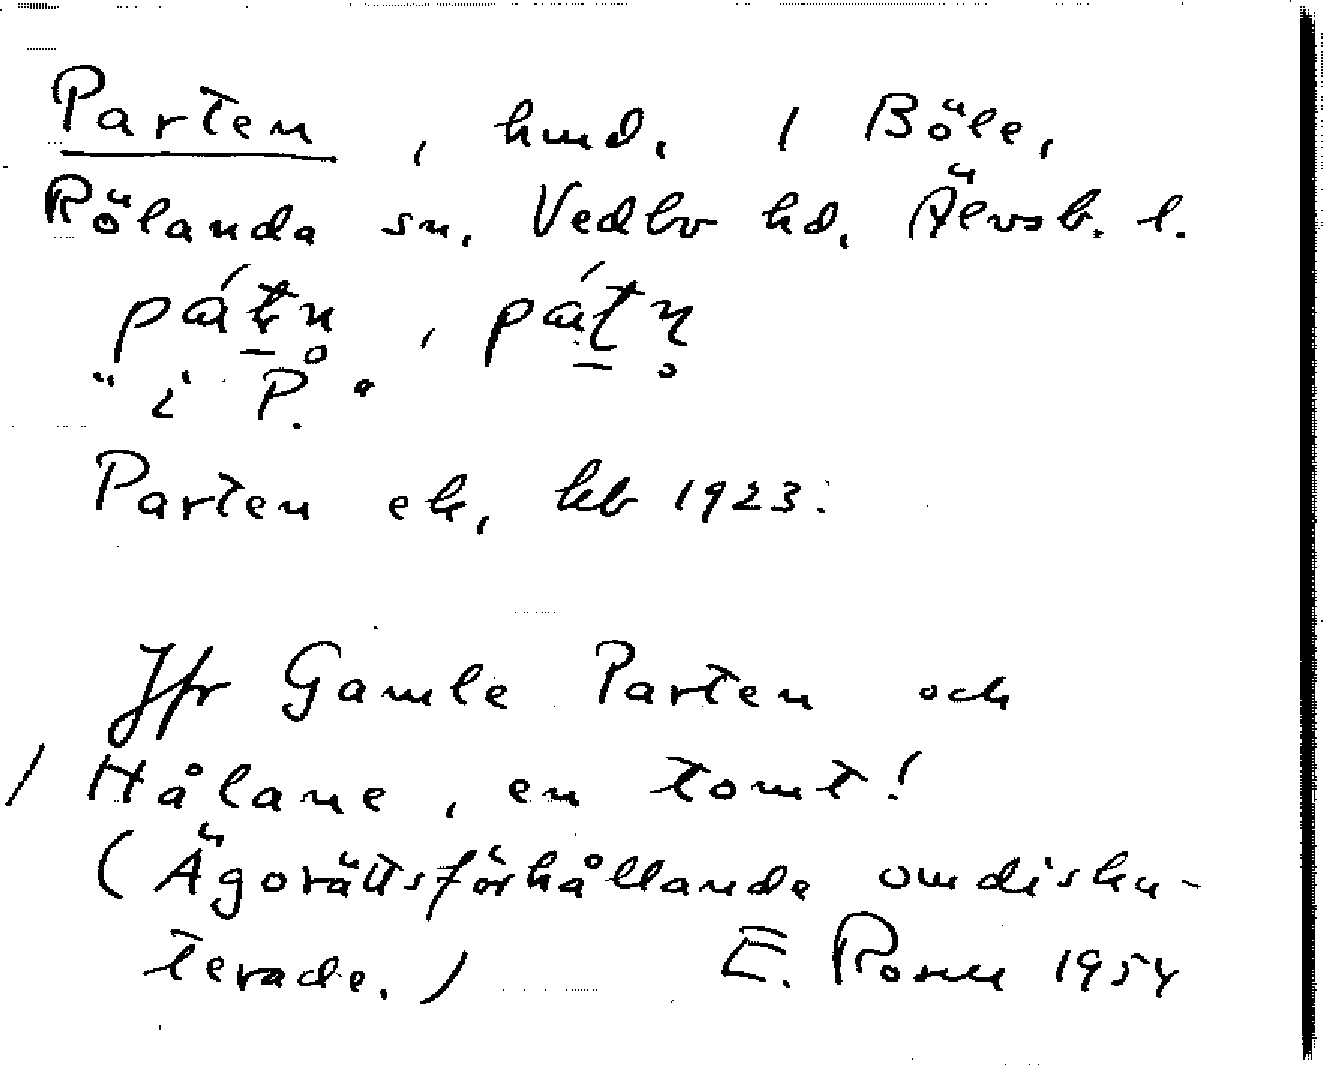 Parten, hmd. / Böle,
Rölanda sn. Vedbo hd. Älvsb. l.
pát̠n̥, pát̠n̥
"i P."
Parten ek, kb 1923.
Jfr Gamle Parten och
/ Hålane, en tomt!
(Ägorättsförhållande omdisku-
terade.) E. 1954